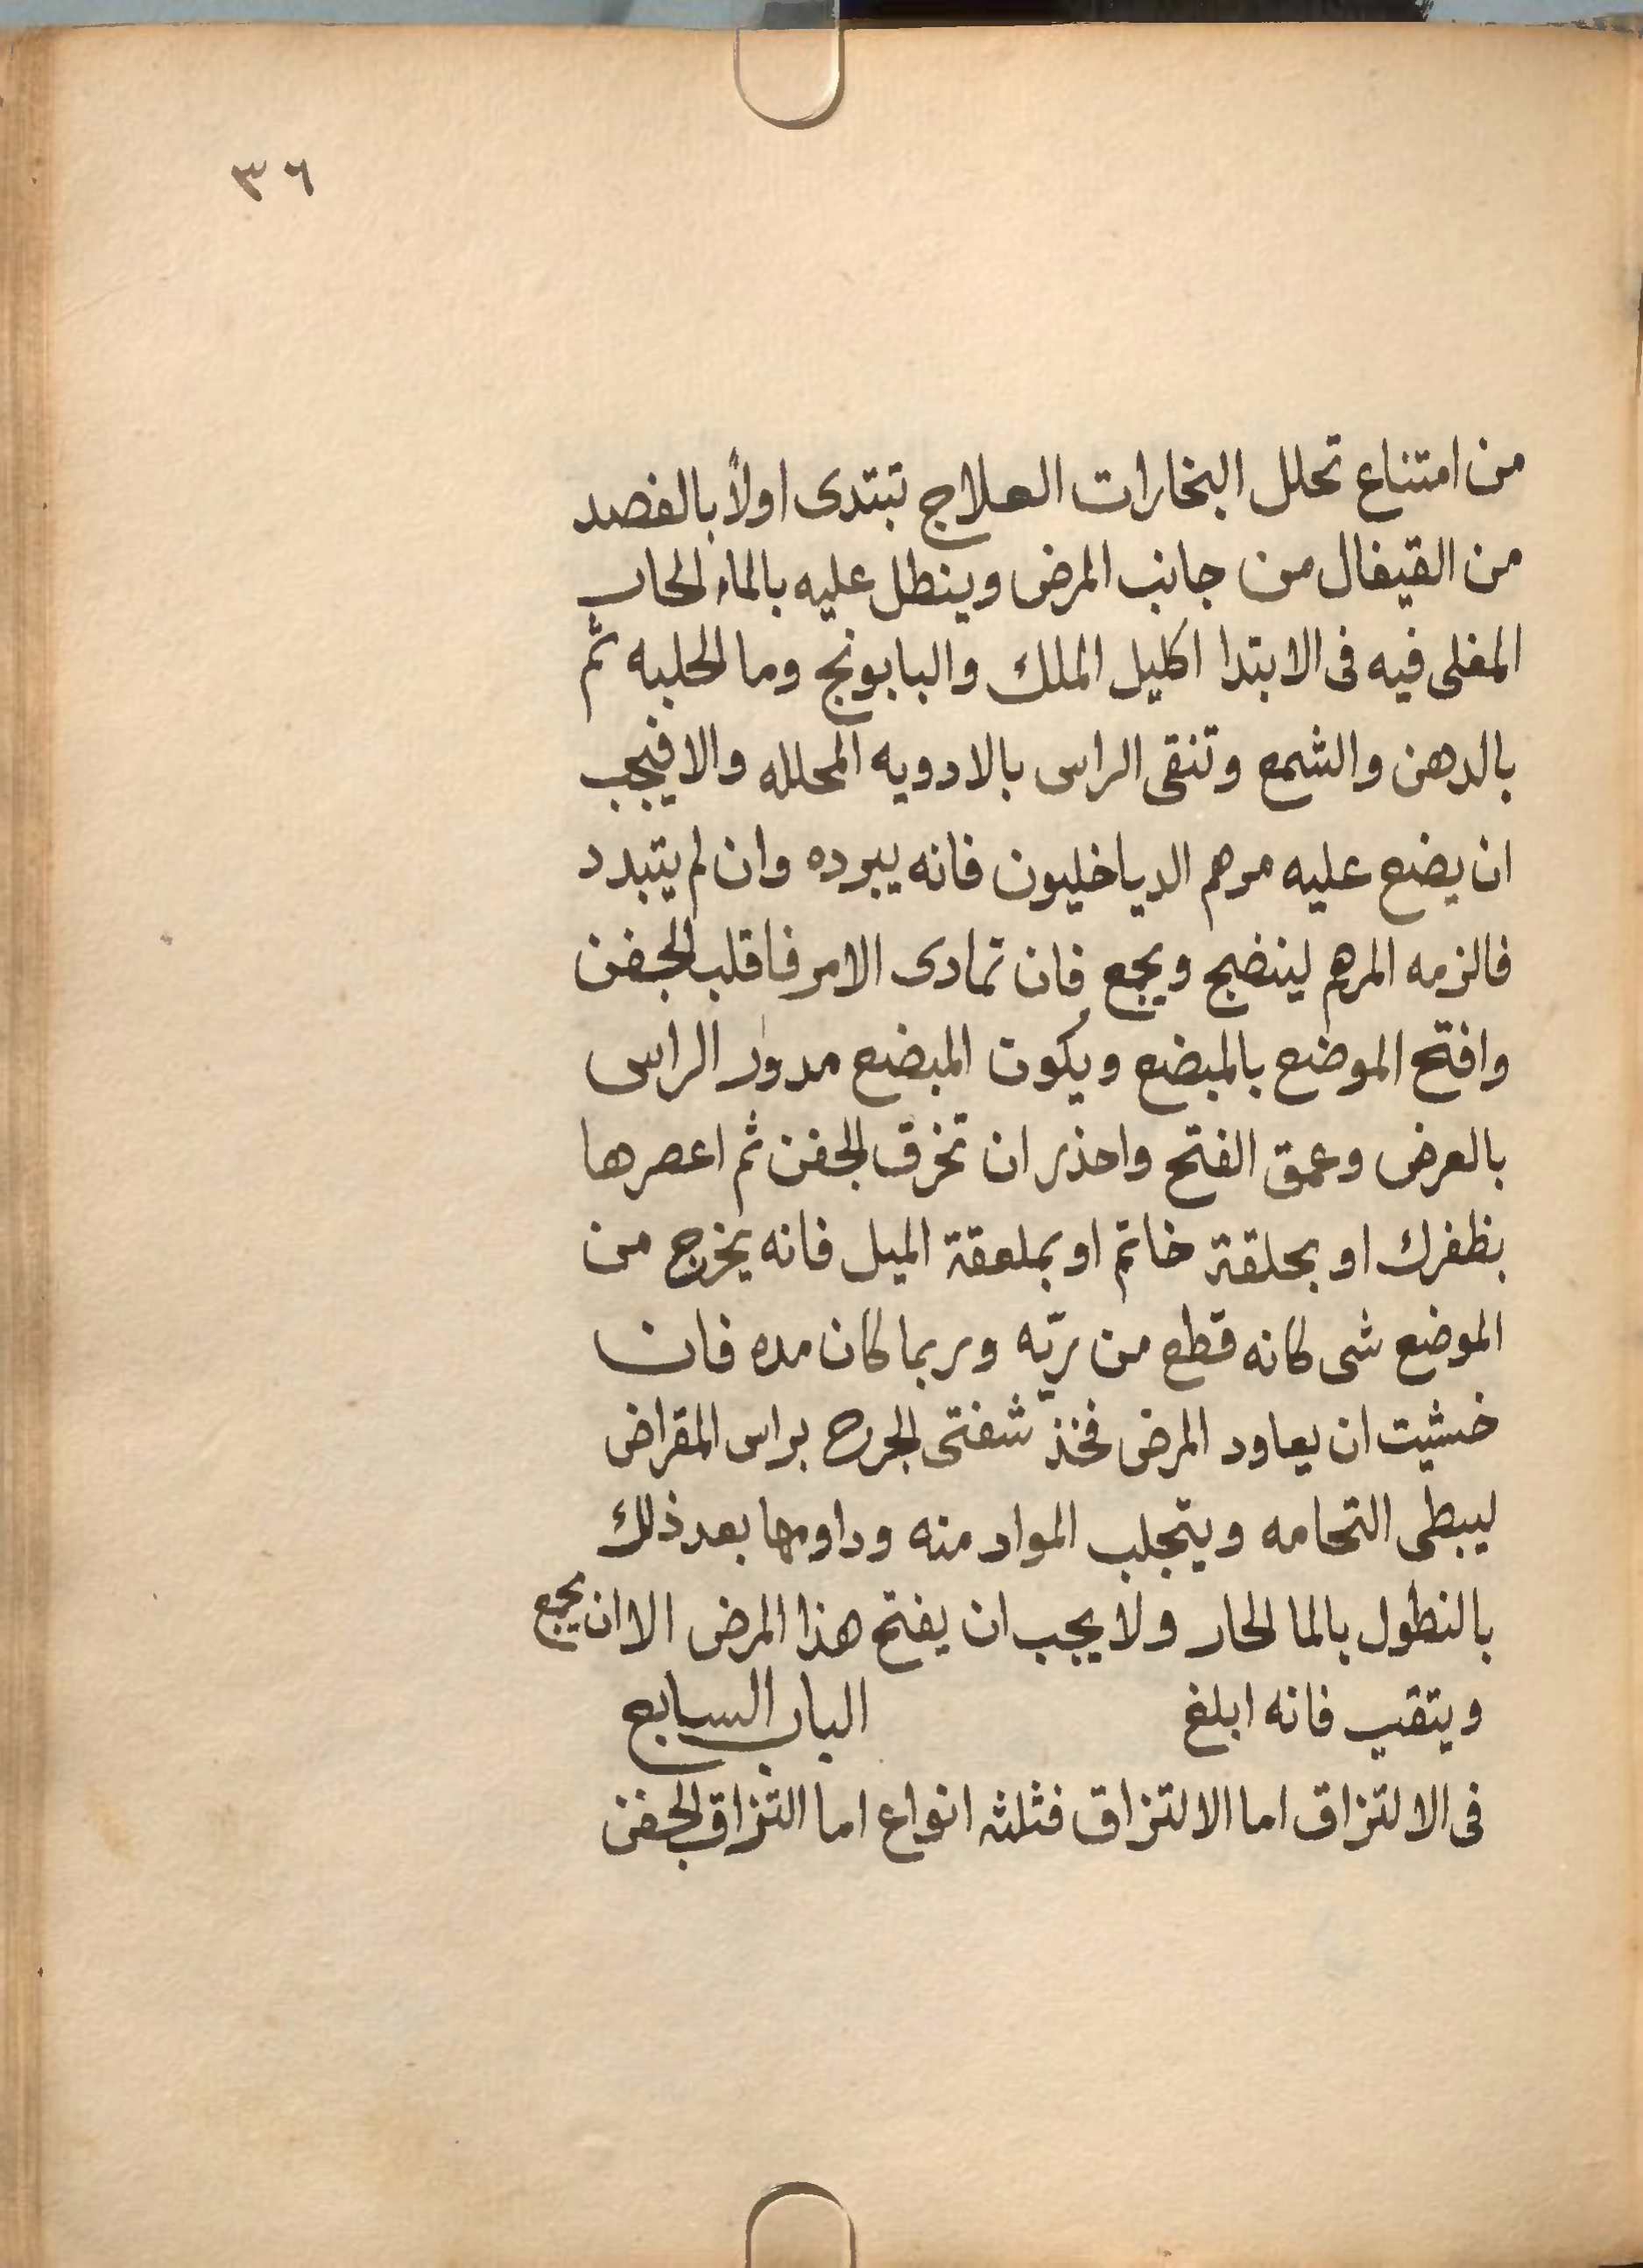 ٣٦
من امتناع تحلل البخارات العلاج تبتدى اولاً بالفصد
من القيفال من جانب المرض وينطل عليه بالماء الحار
المغلى فيه فى الابتدا اكليل الملك والبابونج وما الحلبه ثم
بالدهن والشمع وتنقى الراس بالادويه المحلله والا فيجب
ان يضع عليه مرهم الدياخليون فانه يبرده وان لم يتبدد
فالزمه المرهم لينضج ويجمع فان تمادى الامر فاقلب الجفن
وافتح الموضع بالمبضع ويكون المبضع مدور الراس
بالعرض وعمق الفتح واحذر ان تخرق الجفن ثم اعصرها
بظفرك او بحلقة خاتم او بملعقة الميل فانه يخرج من
الموضع شى كانه قطع من ريّه وربما كان مده فان
خشيت ان يعاود المرض فخذ شفتى الجرح براس المقراض
ليبطى التحامه ويتجلب المواد منه وداومها بعد ذلك
بالنطول بالما الحار ولا يجب ان يفتح هذا المرض الا ان يجمع
ويتقيب فانه ابلغ الباب السابع
فى الالتزاق اما الالتزاق فثلثه انواع اما التزاق الجفن